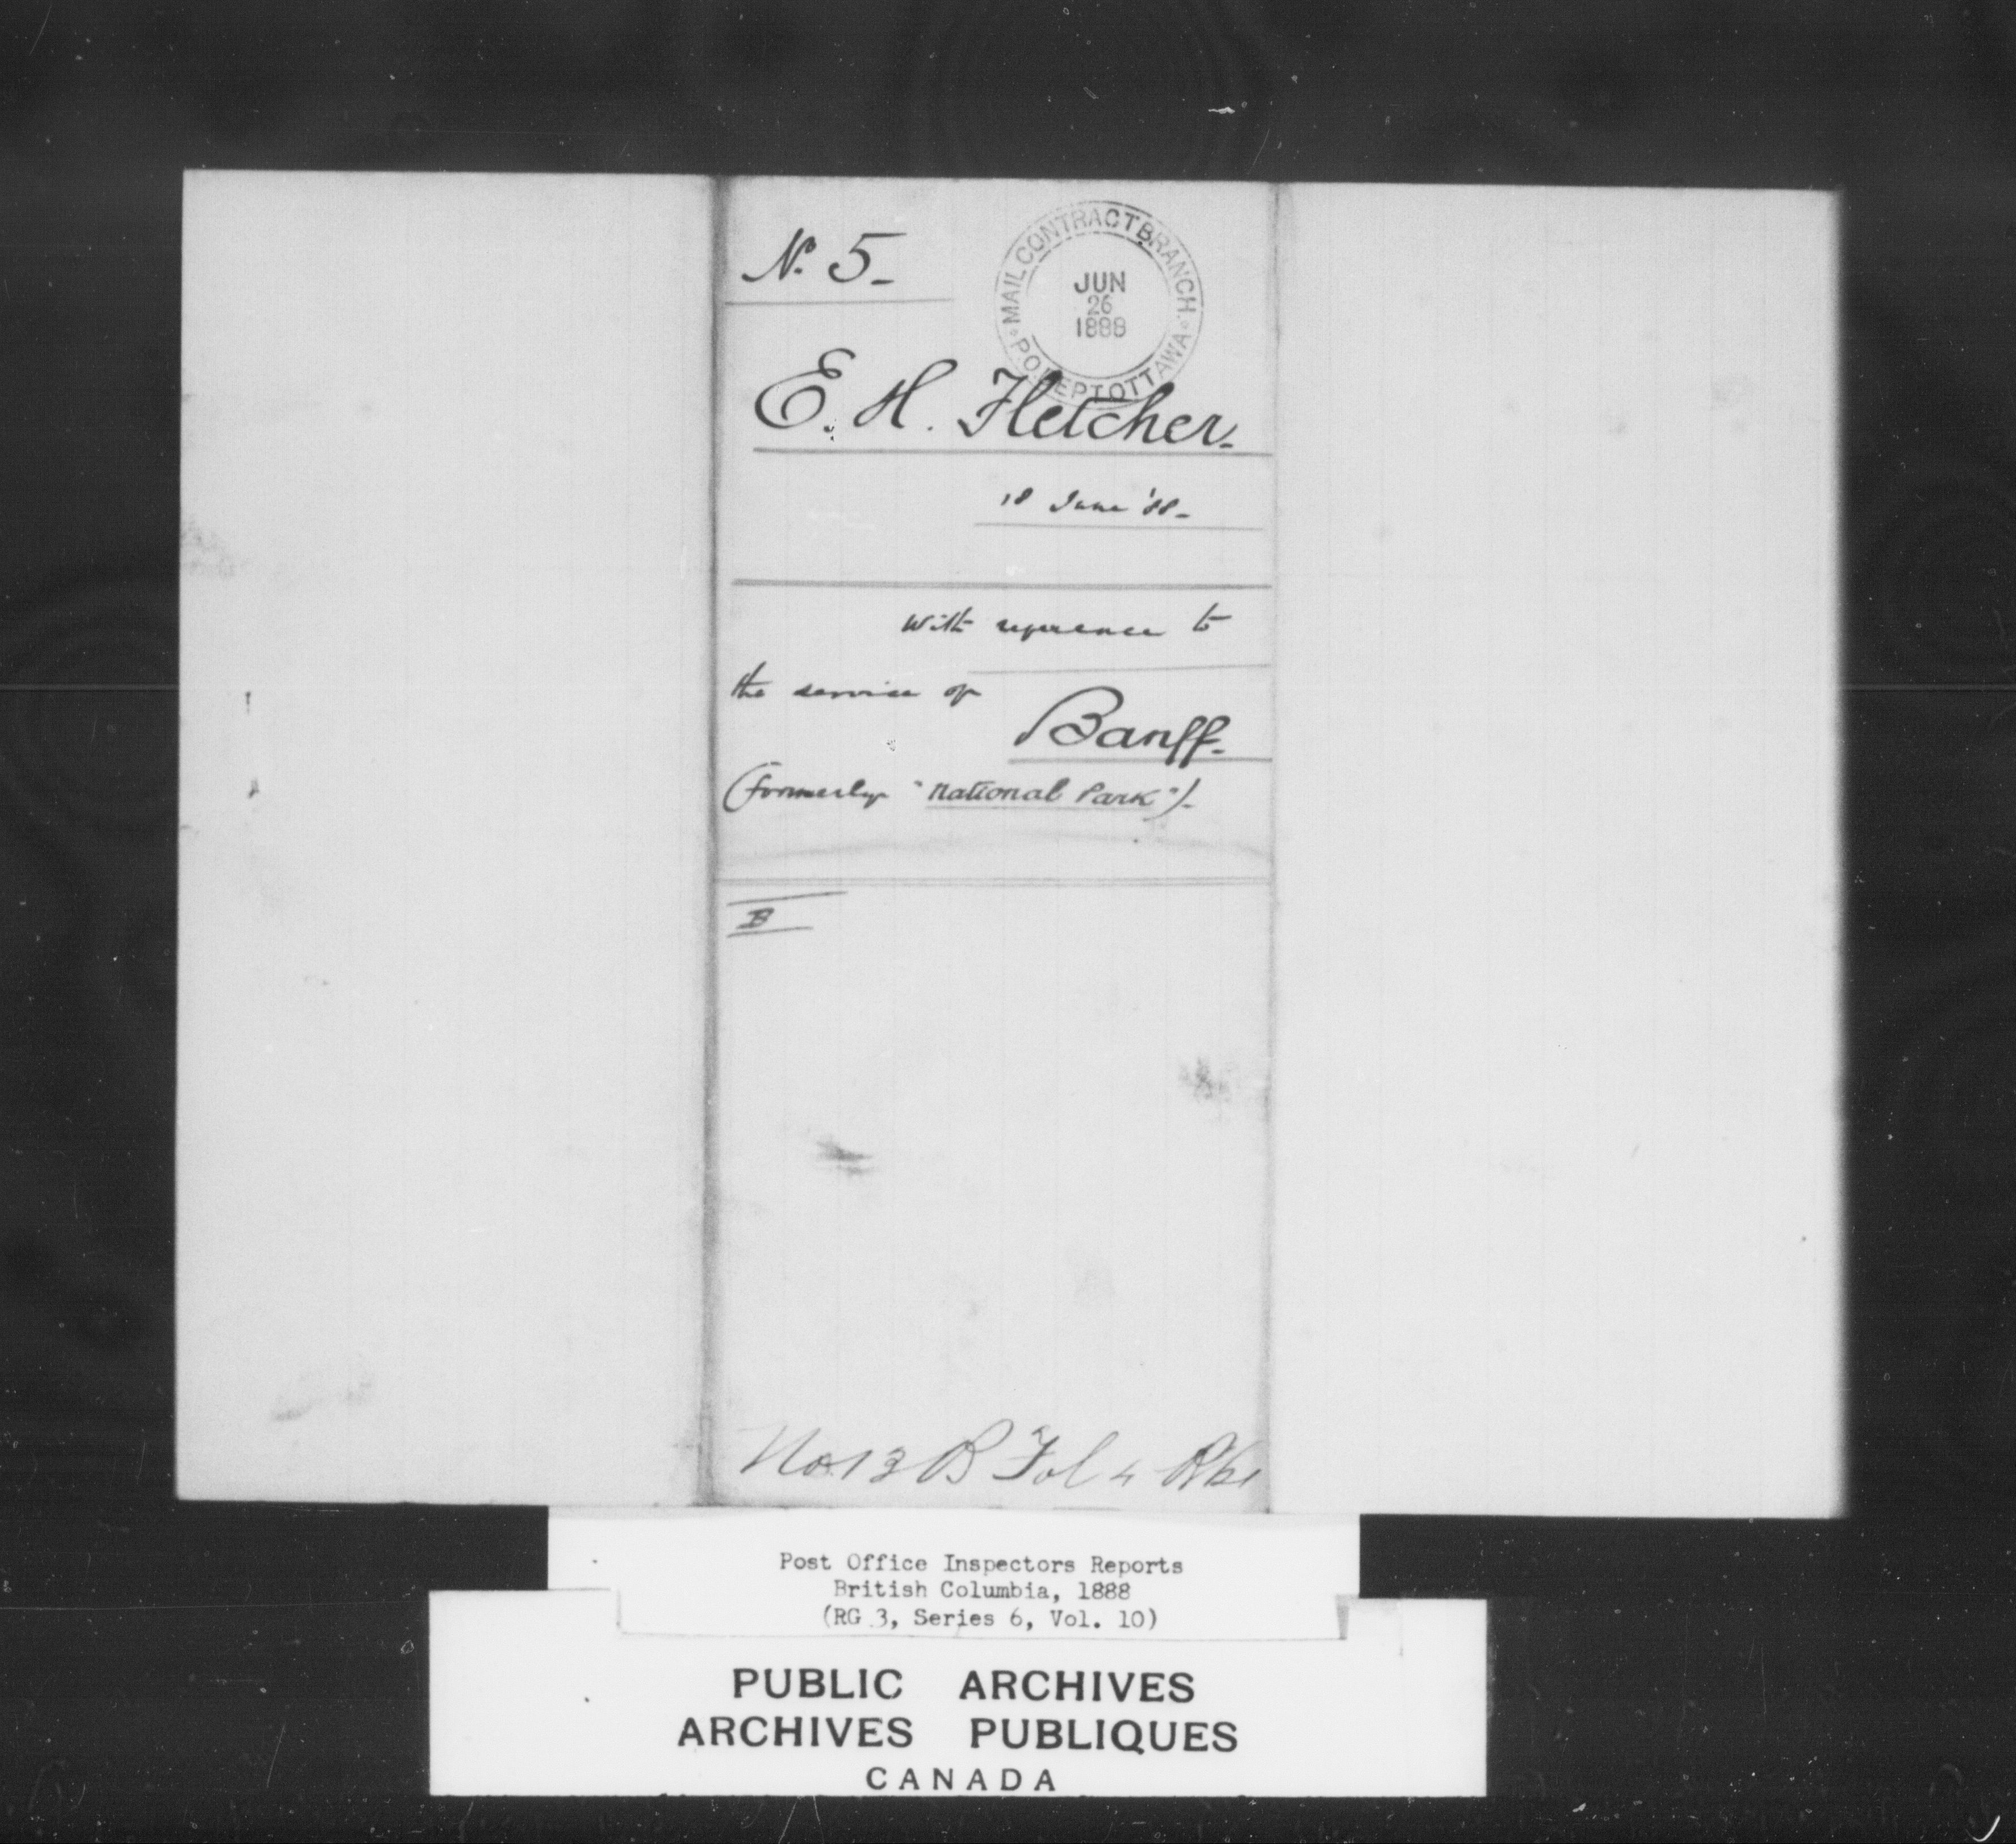 No. 5-
MAIL CONTRACT BRANCH.
JUN
26
1888
P.O. DEPT OTTAWA
E. H. Fletcher.
18 June '88-
With reference to
the service of
Banff.
(formerly "National Park")-
B
No 13 B Fol 4
Post Office Inspectors Reports
British Columbia, 1888
(RG 3, Series 6, Vol. 10)
PUBLIC ARCHIVES
ARCHIVES PUBLIQUES
CANADA